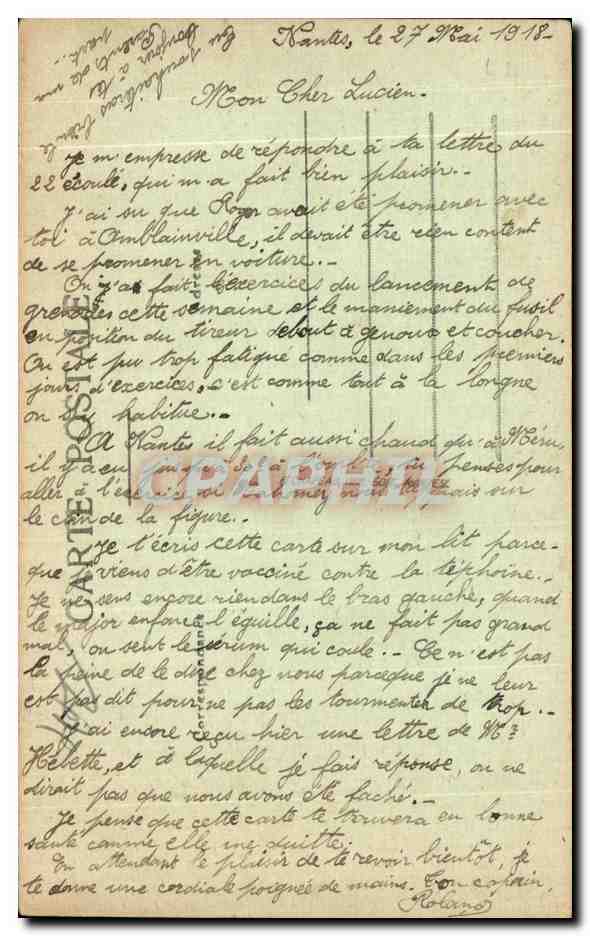 Nantes, le 27 Mai 1918-
Mon Cher Lucien-
Je m'empresse de répondre à ta lettre du
22 écoulé, qui m'a fait bien plaisir.-
J'ai su que Roger avait été promener avec
toi à Amblainville, il devait être bien content
de se promener en voiture.-
On fait l'exercices du lancement de
grenades cette semaine et le maniement du fusil
en position du tireur debout à genoux et coucher.
On est pu trop fatigué comme dans les premiers
jours d'exercices, c'est comme tout à la longue
on s'y habitue.-
A Nantes il fait aussi chaud qu'à Méru,
il y a eu jusque à tu penses pour
aller à l'exercice si nous sur
le coin de la figure.-
Je t'écris cette carte sur mon lit parce-
que je viens d'être vacciné contre la téphoïne.-
Je ne sens encore rien dans le bras gauche, quand
le major enfonce l'éguille, ça ne fait pas grand
mal, on sent le sérum qui coule.- Ce n'est pas
la peine de le dire chez nous parceque je ne leur
est pas dit pour ne pas les tourmenter de trop.-
J'ai encore reçu hier une lettre de M?
Hébette, et à laquelle je fais réponse, on ne
dirait pas que nous avons été faché.-
Je pense que cette carte te trouvera en bonne
santé comme elle me quitte.
En attendant le plaisir de te revoir bientôt, je
te donne une cordiale poignée de mains. Ton copain,
Roland
Tu souhaiteras bien le
bonjour à tes
Parents de ma
part...
CARTE POSTALE
Correspondance
Adresse
CPAPHIL